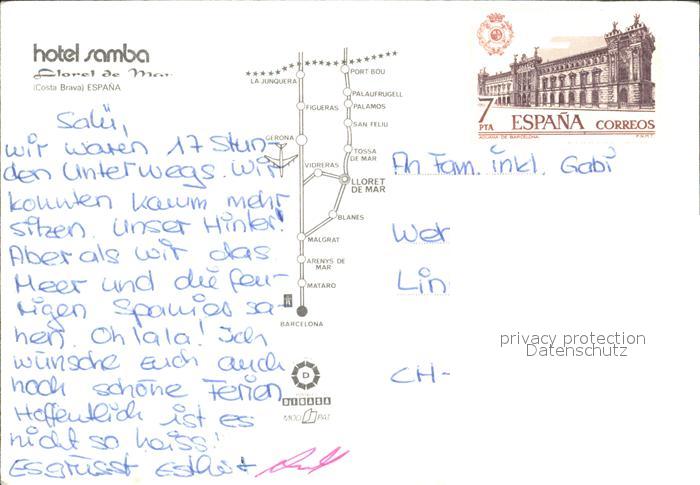 hotel samba
Lloret de Mar
(Costa Brava) ESPAÑA
Salü,
wir waren 17 Stun-
den Unterwegs. Wir
konnten kaum mehr
sitzen. Unser Hinter!
Aber als wir das
Meer und die feu-
rigen Spanier sa-
hen. Oh lala! Ich
wünsche Euch auch
noch schöne Ferien
Hoffentlich ist es
nicht so heiss!
Es grüsst Esther
LA JUNQUERA
PORT BOU
PALAUFRUGELL
FIGUERAS
PALAMOS
SAN FELIU
GERONA
TOSSA
DE MAR
VIDRERAS
LLORET
DE MAR
BLANES
MALGRAT
ARENYS DE
MAR
MATARO
BARCELONA
D
MOD PAT
7
PTA
ESPAÑA CORREOS
ADUANA DE BARCELONA
F.N.M.T.
An Fam. inkl. Gabi
Wer
Lin
CH-
privacy protection
Datenschutz